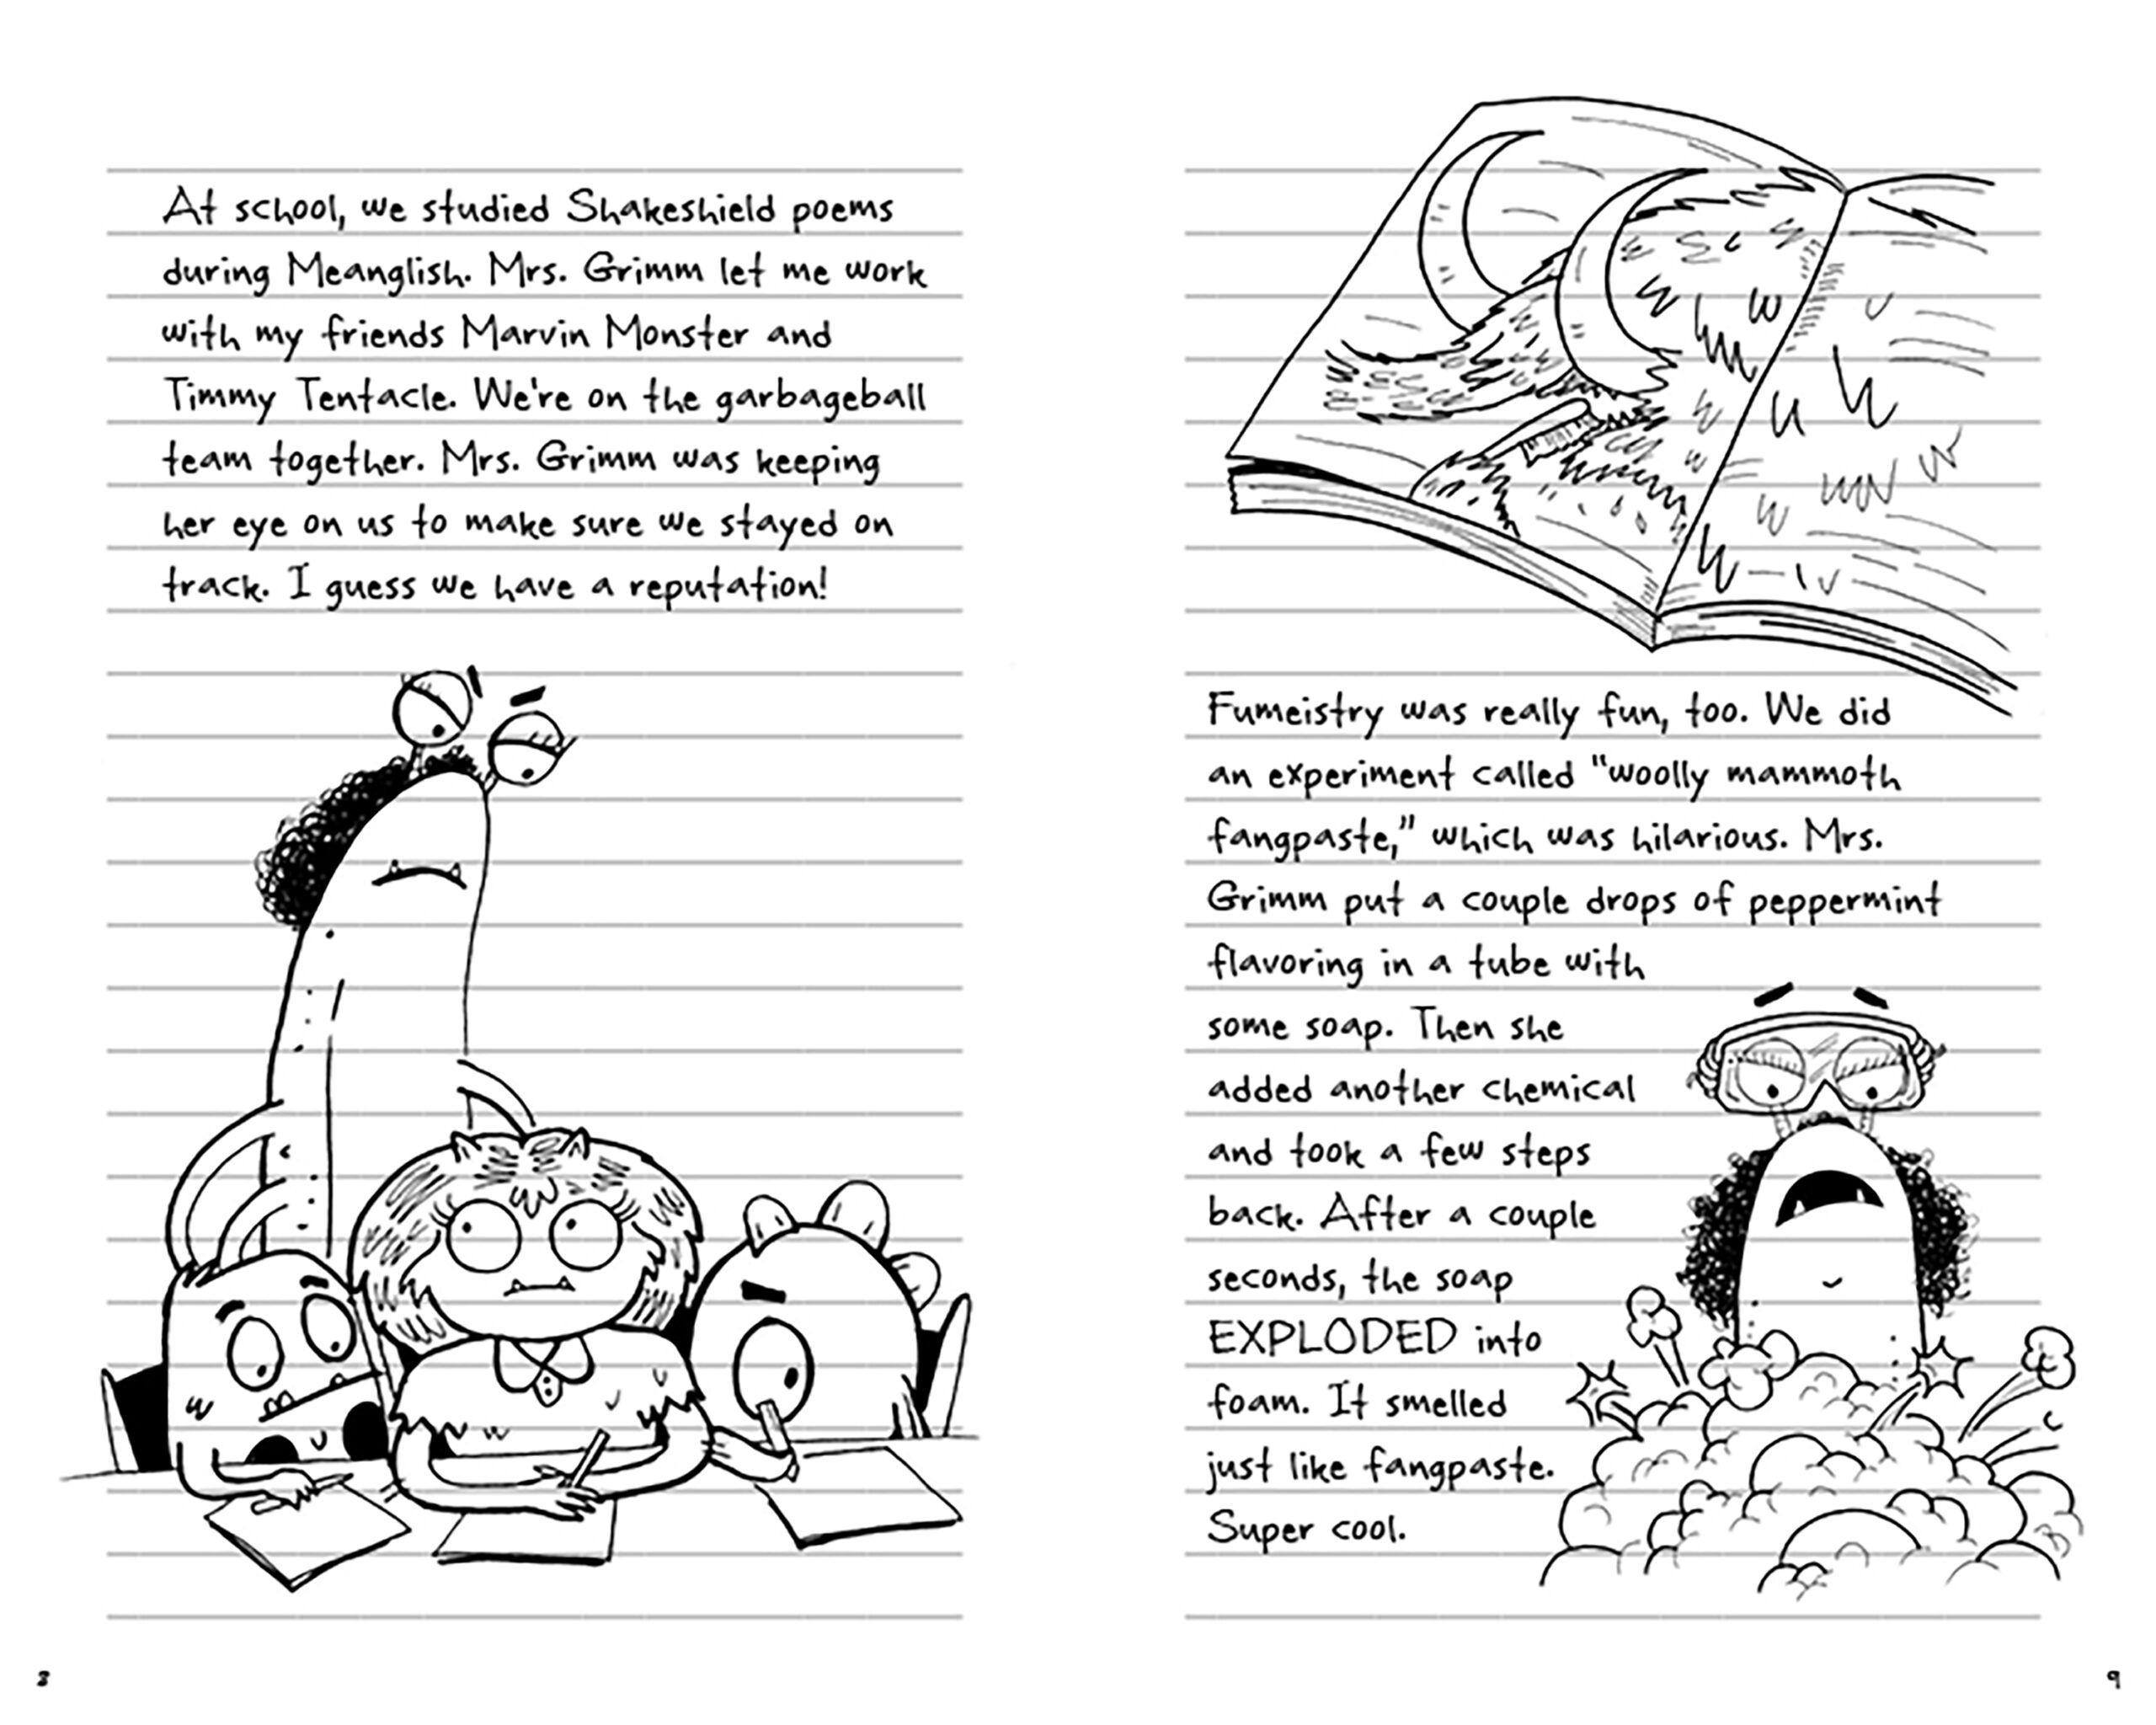 At school, we studied Shakeshield poems
during Meanglish. Mrs. Grimm let me work
with my friends Marvin Monster and
Timmy Tentacle. We're on the garbageball
team together. Mrs. Grimm was keeping
her eye on us to make sure we stayed on
track. I guess we have a reputation!
8
Fumeistry was really fun, too. We did
an experiment called "woolly mammoth
fangpaste," which was hilarious. Mrs.
Grimm put a couple drops of peppermint
flavoring in a tube with
some soap. Then she
added another chemical
and took a few steps
back. After a couple
seconds, the soap
EXPLODED into
foam. It smelled
just like fangpaste.
Super cool.
9